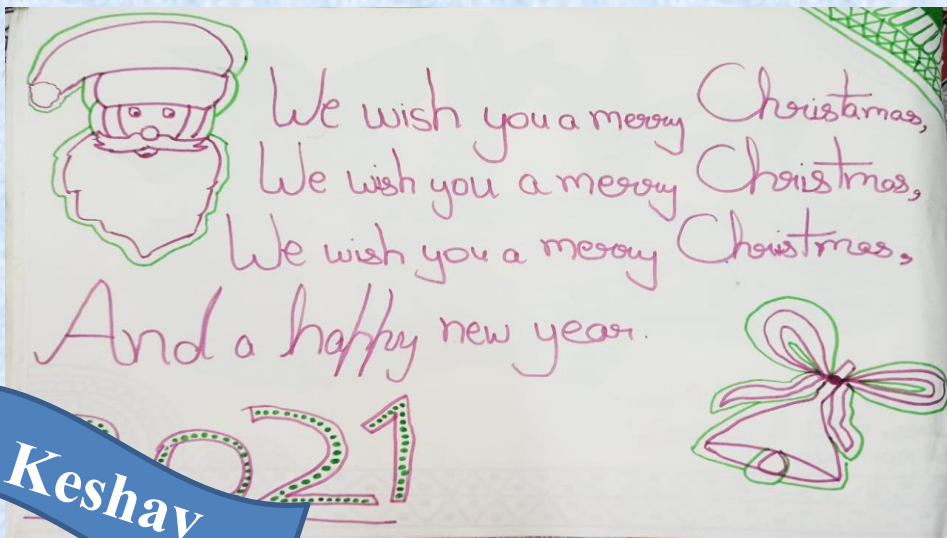 We wish you a merry Christamas,
We wish you a merry Christmas,
We wish you a merry Christmas,
And a happy new year.
2021
Keshav